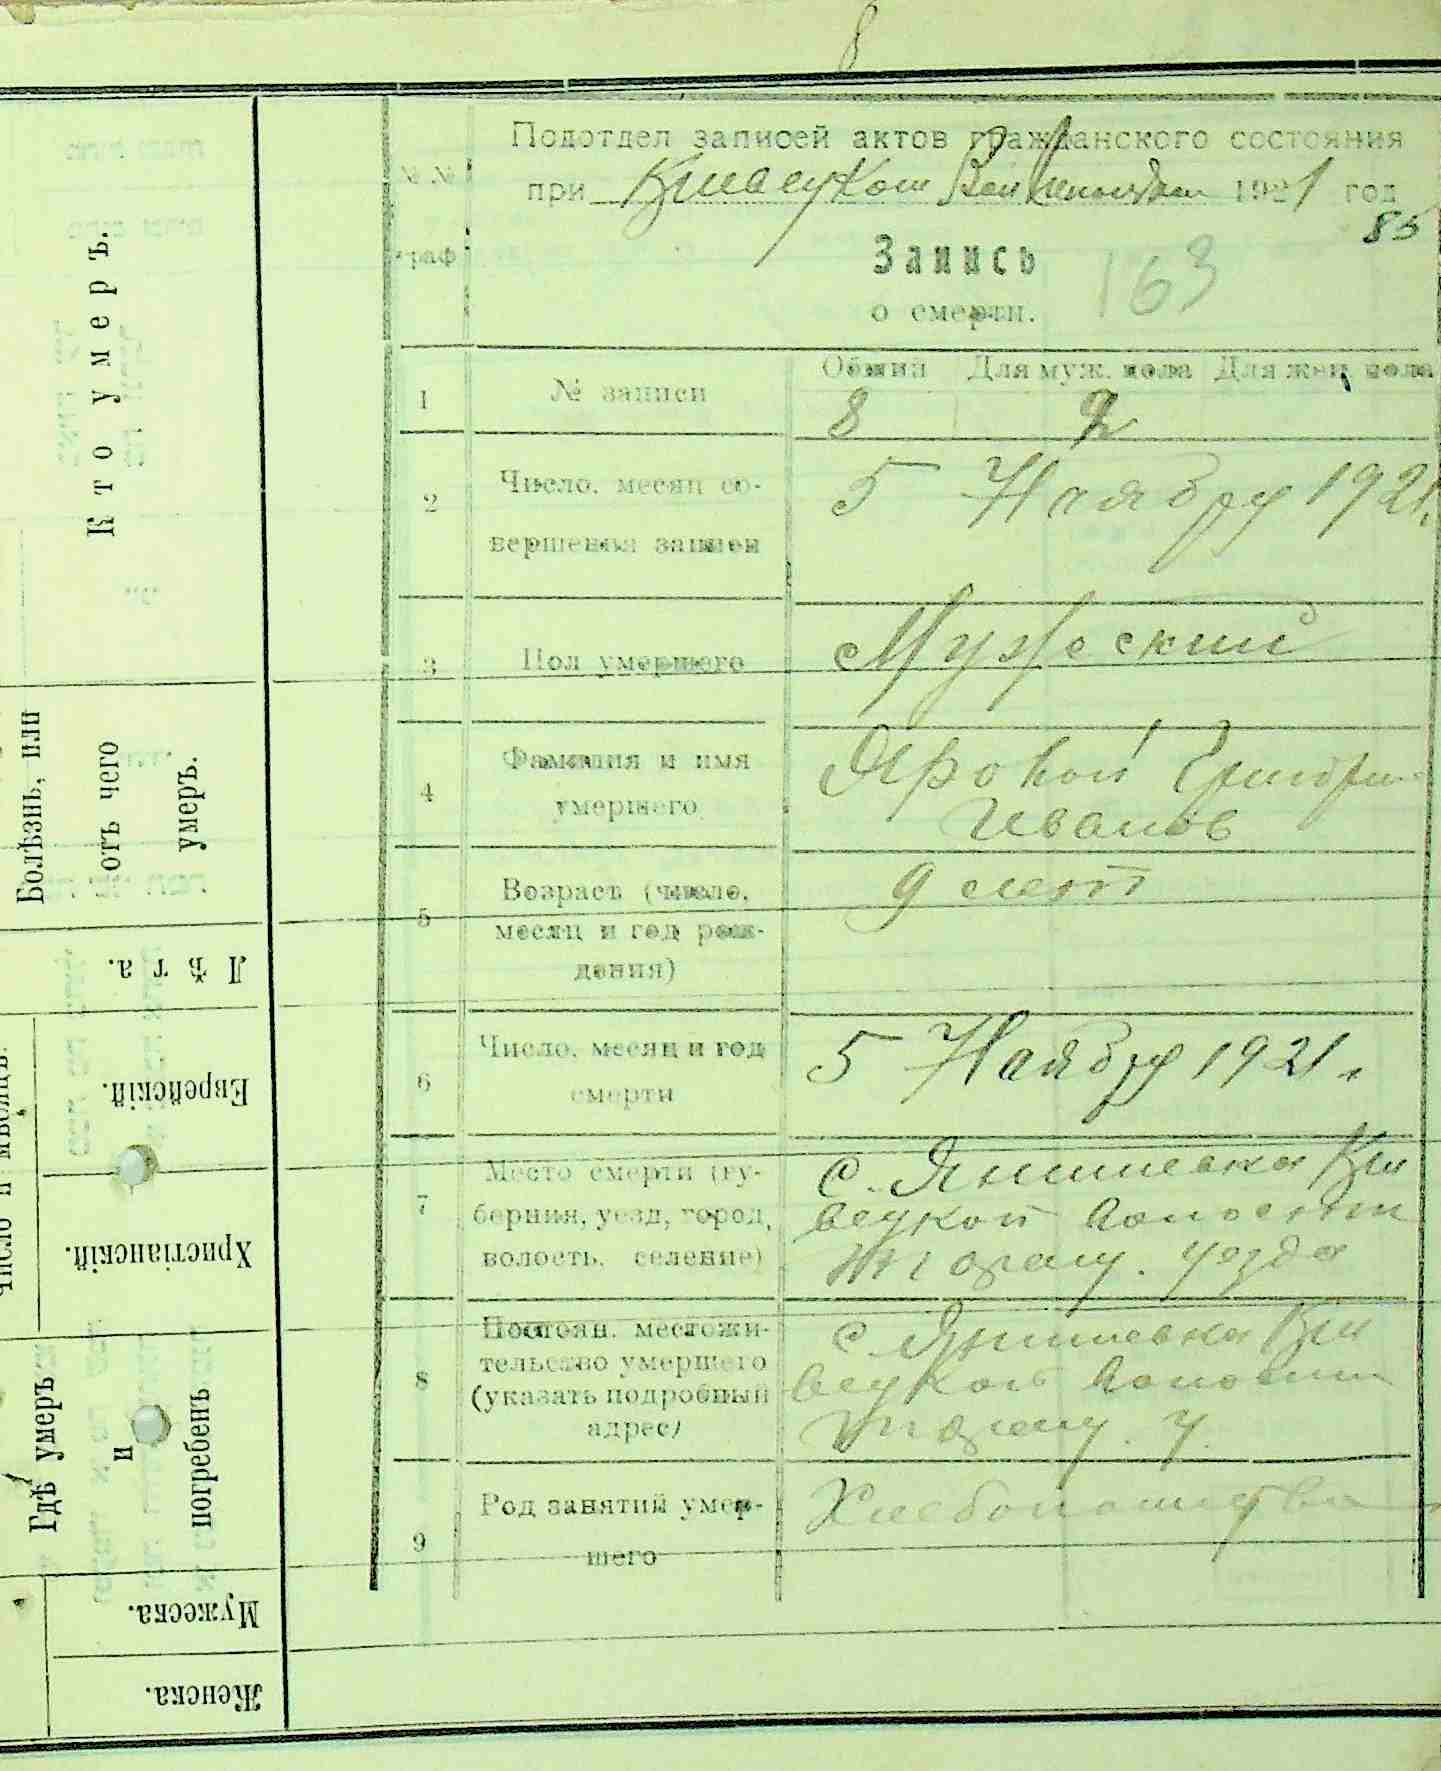 8
Подотдел записей актов гражданского состояния
при 1921 год
85
№.№
граф
Запись
163
о смерти.
Общий Для муж. пола Для жен. пола
1 № записи 8
2 Число, месяц со-
вершения записи
5 Ноябру 1921.
3 Пол умершего Мужеский
4 Фамилия и имя
умершего
Яровой Григори
Иванов
5 Возраст (число,
месяц и год рож-
дения)
9 лет
6 Число, месяц и год
смерти
5 Ноябру 1921 г.
7 Место смерти (гу-
берния, уезд, город,
волость, селение)
с. Янишевка
уезда
8 Постоян. местожи-
тельство умершего
(указать подробный
адрес)
с. Янишевка
у.
9 Род занятий умер-
шего
Хлебопашества
Кто умеръ.
Болѣзнь, или
отъ чего
умеръ.
Лѣта.
Число и мѣсяцъ.
Еврейскій.
Христіанскій.
Гдѣ умеръ
и
погребенъ
Мужеска.
Женска.